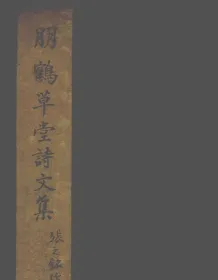 朋鶴草堂詩文集
張